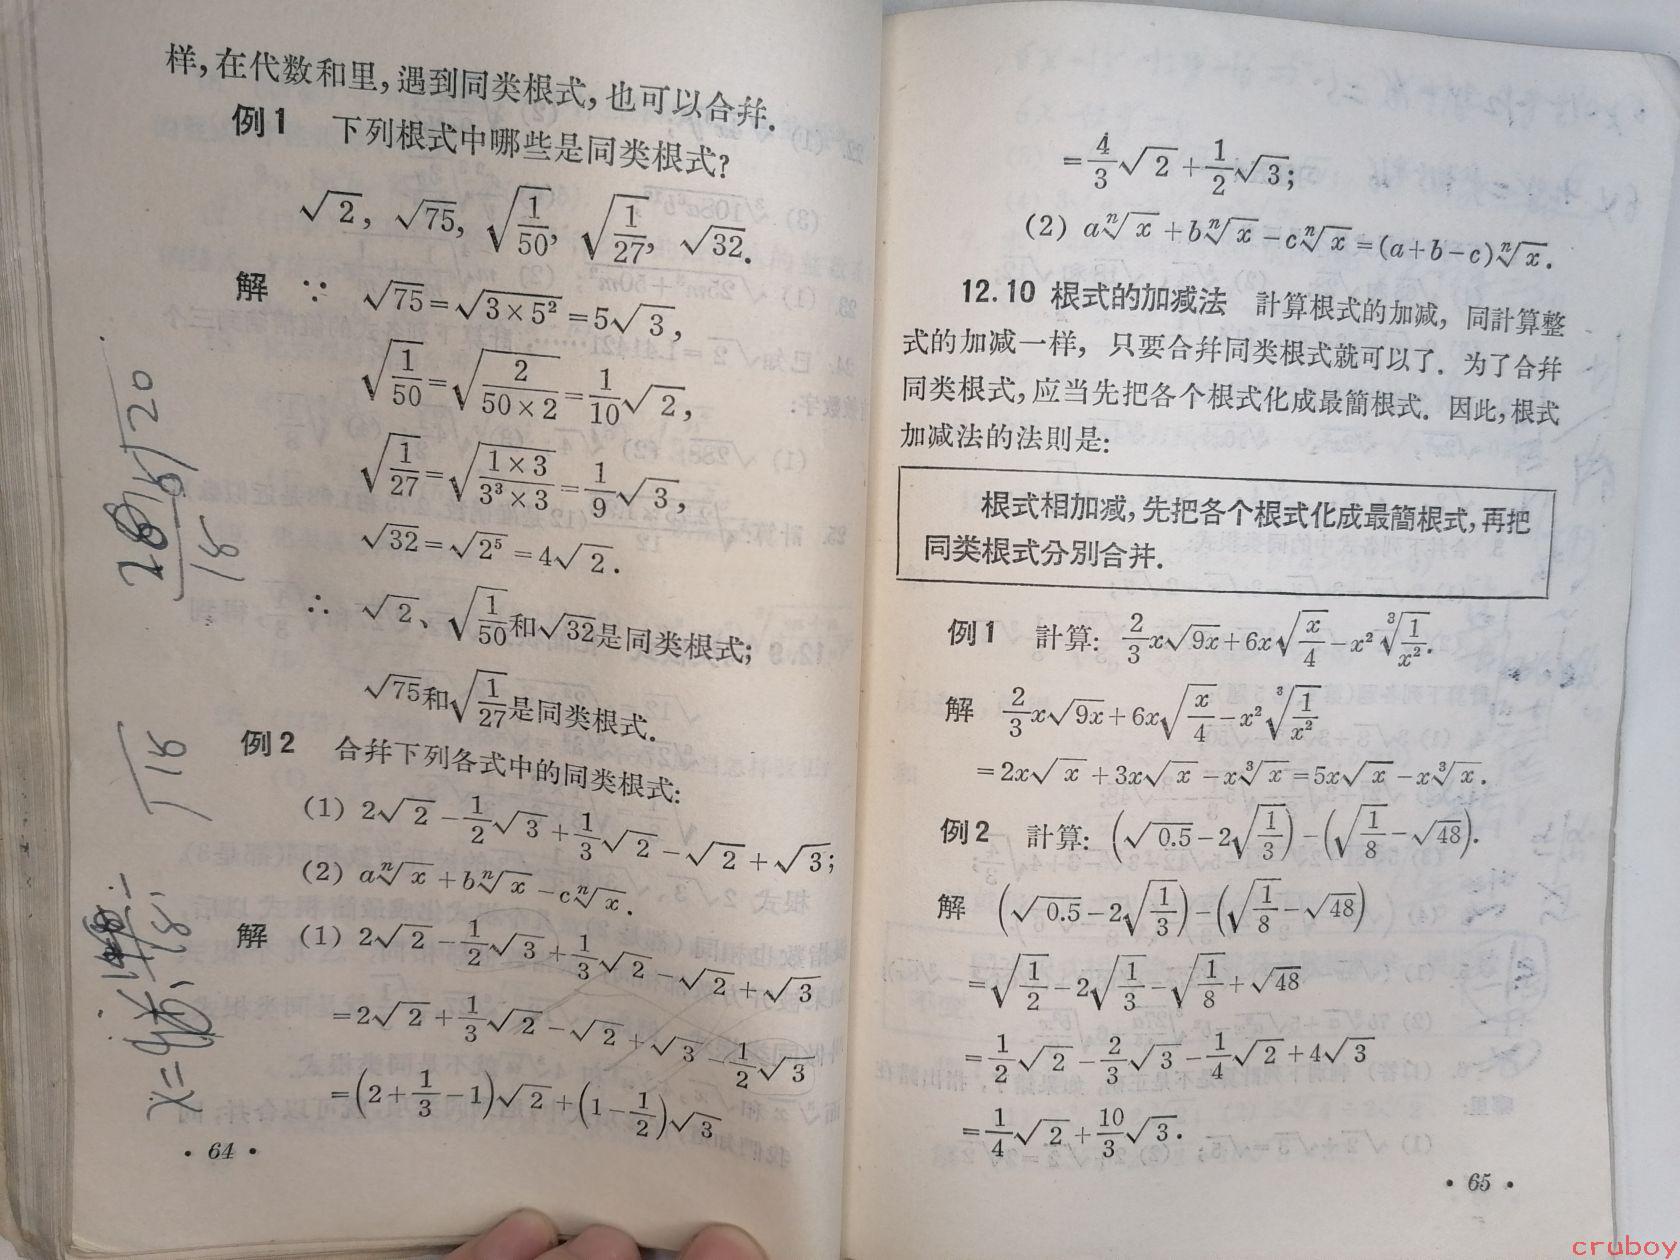 样,在代数和里,遇到同类根式,也可以合幷.
例1 下列根式中哪些是同类根式?
√2, √75, √(1/50), √(1/27), √32.
解 ∵ √75=√(3×5²)=5√3,
√(1/50)=√(2/(50×2))=(1/10)√2,
√(1/27)=√((1×3)/(3³×3))=(1/9)√3,
√32=√(2⁵)=4√2.
∴ √2、√(1/50)和√32是同类根式;
√75和√(1/27)是同类根式.
例2 合幷下列各式中的同类根式:
(1) 2√2-(1/2)√3+(1/3)√2-√2+√3;
(2) aⁿ√x+bⁿ√x-cⁿ√x.
解 (1) 2√2-(1/2)√3+(1/3)√2-√2+√3
=2√2+(1/3)√2-√2+√3-(1/2)√3
=(2+1/3-1)√2+(1-1/2)√3
• 64 •
=(4/3)√2+(1/2)√3;
(2) aⁿ√x+bⁿ√x-cⁿ√x=(a+b-c)ⁿ√x.
12.10 根式的加减法 計算根式的加减,同計算整
式的加减一样,只要合幷同类根式就可以了.为了合幷
同类根式,应当先把各个根式化成最簡根式.因此,根式
加减法的法則是:
根式相加减,先把各个根式化成最簡根式,再把
同类根式分別合幷.
例1 計算: (2/3)x√(9x)+6x√(x/4)-x²³√(1/x²).
解 (2/3)x√(9x)+6x√(x/4)-x²³√(1/x²)
=2x√x+3x√x-x³√x=5x√x-x³√x.
例2 計算: (√0.5-2√(1/3))-(√(1/8)-√48).
解 (√0.5-2√(1/3))-(√(1/8)-√48)
=√(1/2)-2√(1/3)-√(1/8)+√48
=(1/2)√2-(2/3)√3-(1/4)√2+4√3
=(1/4)√2+(10/3)√3.
• 65 •
cruboy